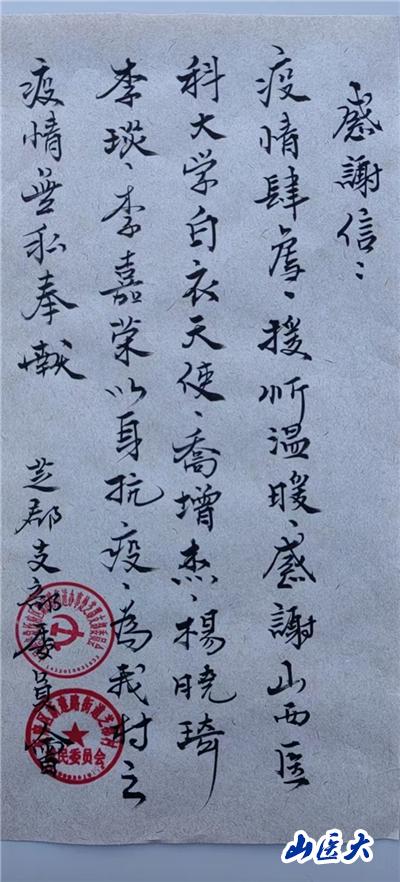 感謝信:
疫情肆虐、援忻温暖、感謝山西医
科大学白衣天使、喬增杰、楊晓琦
李琰、李嘉荣以身抗疫、為我村之
疫情無私奉献
芝郡支部委員會
民委员会
山医大